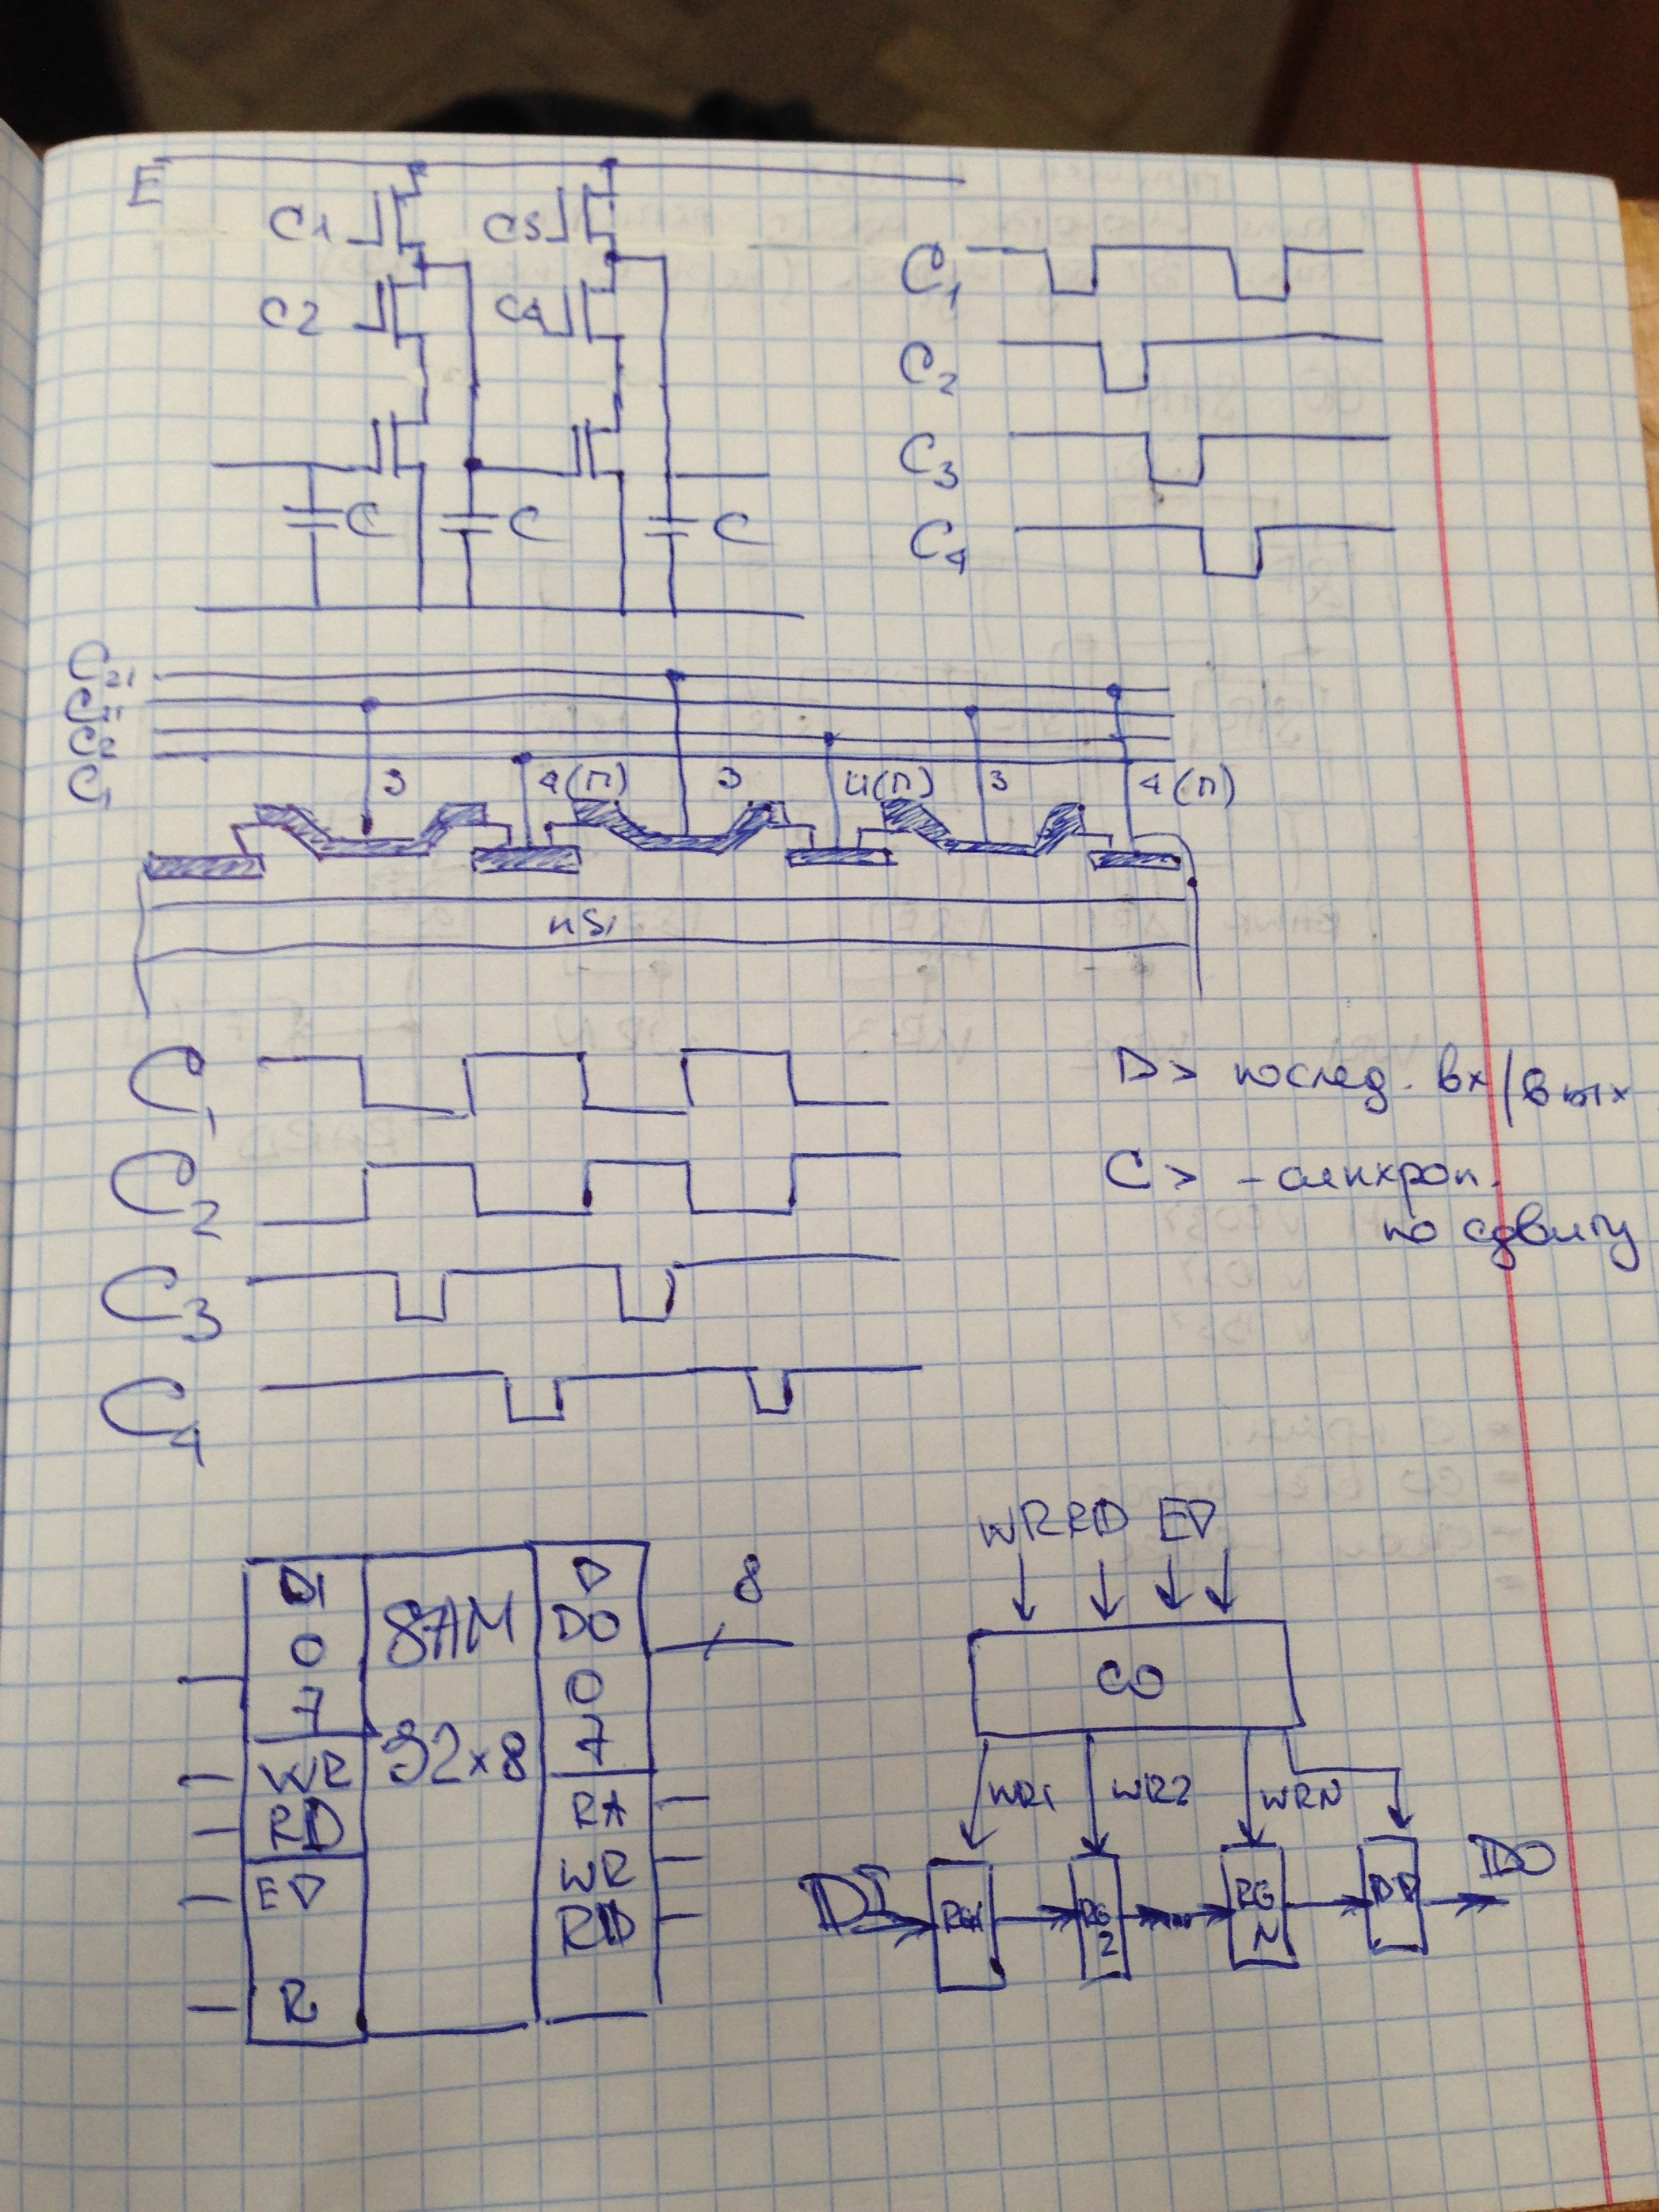 E
C1
C3
C2
C4
C C C
C1
C2
C3
C4
C21
C11
C2
C1
3 4(П) 3 4(П) 3 4(П)
nSi
C1
C2
C3
C4
D> послед. вх/вых
C> - синхрон.
по сдвигу
DI
0
7
WR
RD
R
SAM
32×8
DO
0
7
RA
WR
RD
8
WR RD
CO
WR1 WR2 WRN
DI RG1 RG2 ... RG N DO